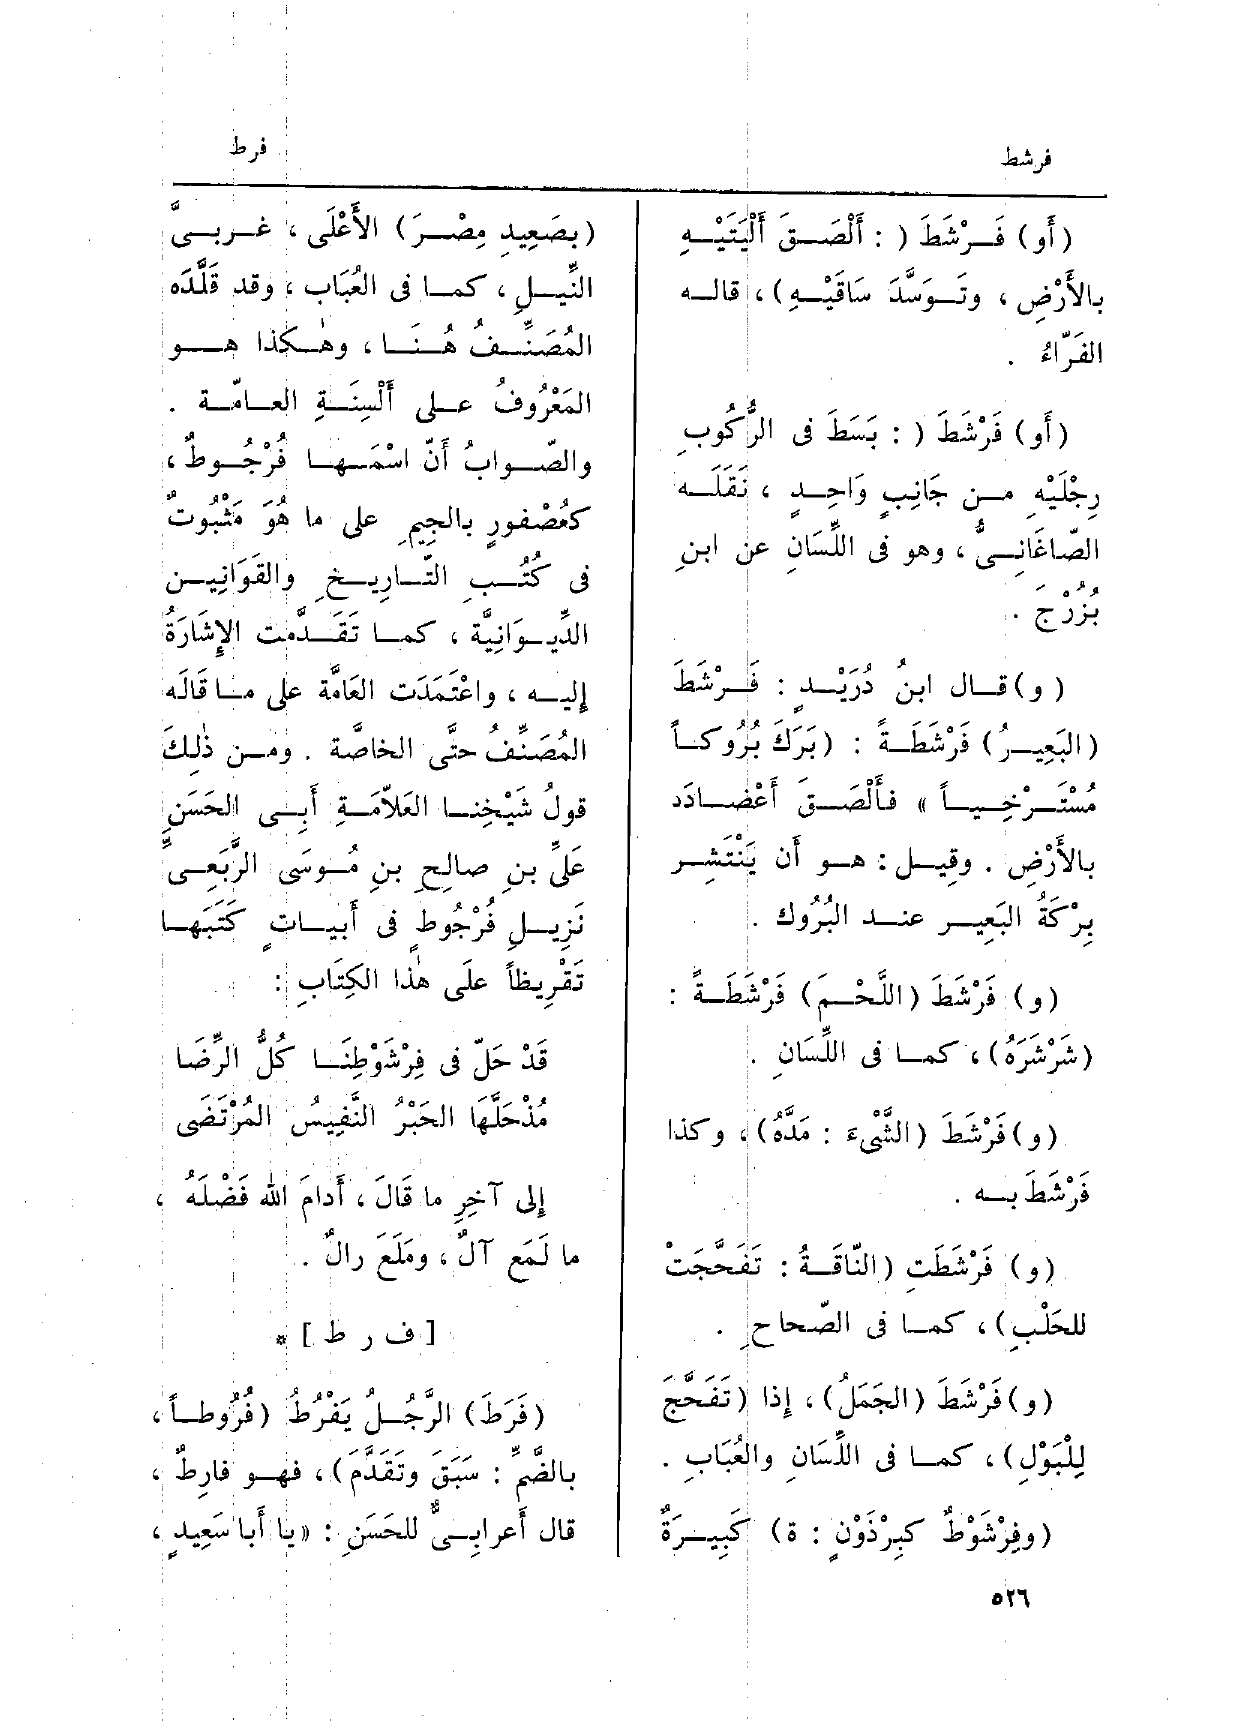 فرشط
فرط
(أو) فَـرْشَطَ ( : أَلْصَـقَ أَلْيَتَيْـهِ
بالأَرْضِ ، وتَـوَسَّدَ سَاقَيْـهِ) ، قالـه
الفَرّاءُ .
(أو) فَرْشَطَ ( : بَسَطَ فى الرُّكُوبِ
رِجْلَيْهِ مـن جَانِبٍ وَاحِـدٍ ، نَقَلَـه
الصّاغَانِـىُّ ، وهو فى اللِّسَانِ عن ابنِ
بُزُرْجَ .
( و) قـال ابنُ دُرَيْـدٍ : فَـرْشَطَ
(البَعِيـرُ) فَرْشَطَـةً : (بَرَكَ بُرُوكـاً
مُسْتَـرْخِيـاً » فأَلْصَـقَ أَعْضـادَه
بالأَرْضِ . وقِيـل : هـو أن يَنْتَشِـر
بِرْكَةُ البَعِيـر عنـد البُرُوك .
(و) فَرْشَطَ (اللَّحْـمَ) فَرْشَطَـةً :
(شَرْشَرَهُ) ، كمـا فى اللِّسَانِ .
(و) فَرْشَطَ (الشَّىْءَ : مَدَّهُ) ، وكذا
فَرْشَطَ بـه .
(و) فَرْشَطَتِ (النّاقَـةُ : تَفَحَّجَتْ
للحَلْبِ) ، كمـا فى الصّحاح .
(و) فَرْشَطَ (الجَمَلُ) ، إذا (تَفَحَّجَ
لِلْبَوْلِ) ، كمـا فى اللِّسَانِ والعُبَابِ .
(وفِرْشَوْطٌ كبِرْذَوْنٍ : ة) كَبِيـرَةٌ
(بصَعِيدِ مِصْـرَ) الأَعْلَى ، غـربـىَّ
النِّيـلِ ، كمـا فى العُبَاب ، وقد قَلَّدَه
المُصَنِّـفُ هُـنَـا ، وهٰـكَذا هـو
المَعْرُوفُ علـى أَلْسِنَـةِ العـامّـة .
والصّـوابُ أَنّ اسْمَـهـا فُرْجُـوطٌ ،
كعُصْفورٍ بالجِيمِ على ما هُوَ مَثْبُوتٌ
فى كُتُـب التّـارِيـخِ والقَوَانِيـن
الدِّيـوَانِيَّة ، كمـا تَقَـدَّمت الإِشَارَةُ
إليـه ، واعْتَمَدَت العَامَّة على مـا قالَه
المُصَنِّفُ حتَّى الخاصَّة . ومـن ذٰلِكَ
قولُ شَيْخِنـا العَلاَّمَـةِ أَبِـى الحَسَنِ
عَلىِّ بنِ صالِحِ بنِ مُـوسَى الرَّبَعِـىِّ
نَزِيـلِ فُرْجُوطٍ فى أَبيـاتٍ كَتَبَهـا
تَقْرِيظاً علَى هٰذا الكِتَابِ :
قَدْ حَلّ فى فِرْشَوْطِنَـا كُلُّ الرِّضَا
مُذْحَلَّهَا الحَبْرُ النَّفِيسُ المُرْتَضَى
إلى آخِرِ ما قَالَ ، أَدامَ الله فَضْلَهُ ،
ما لَمَع آلٌ ، ومَلَعَ رالٌ .
[ ف ر ط ] *
(فَرَطَ) الرَّجُـلُ يَفْرُطُ (فُرُوطـاً ،
بالضَّمِّ : سَبَقَ وتَقَدَّمَ) ، فهـو فارِطٌ ،
قال أَعرابِـىٌّ للحَسَنِ : « يا أَبا سَعِيدٍ ،
٥٢٦